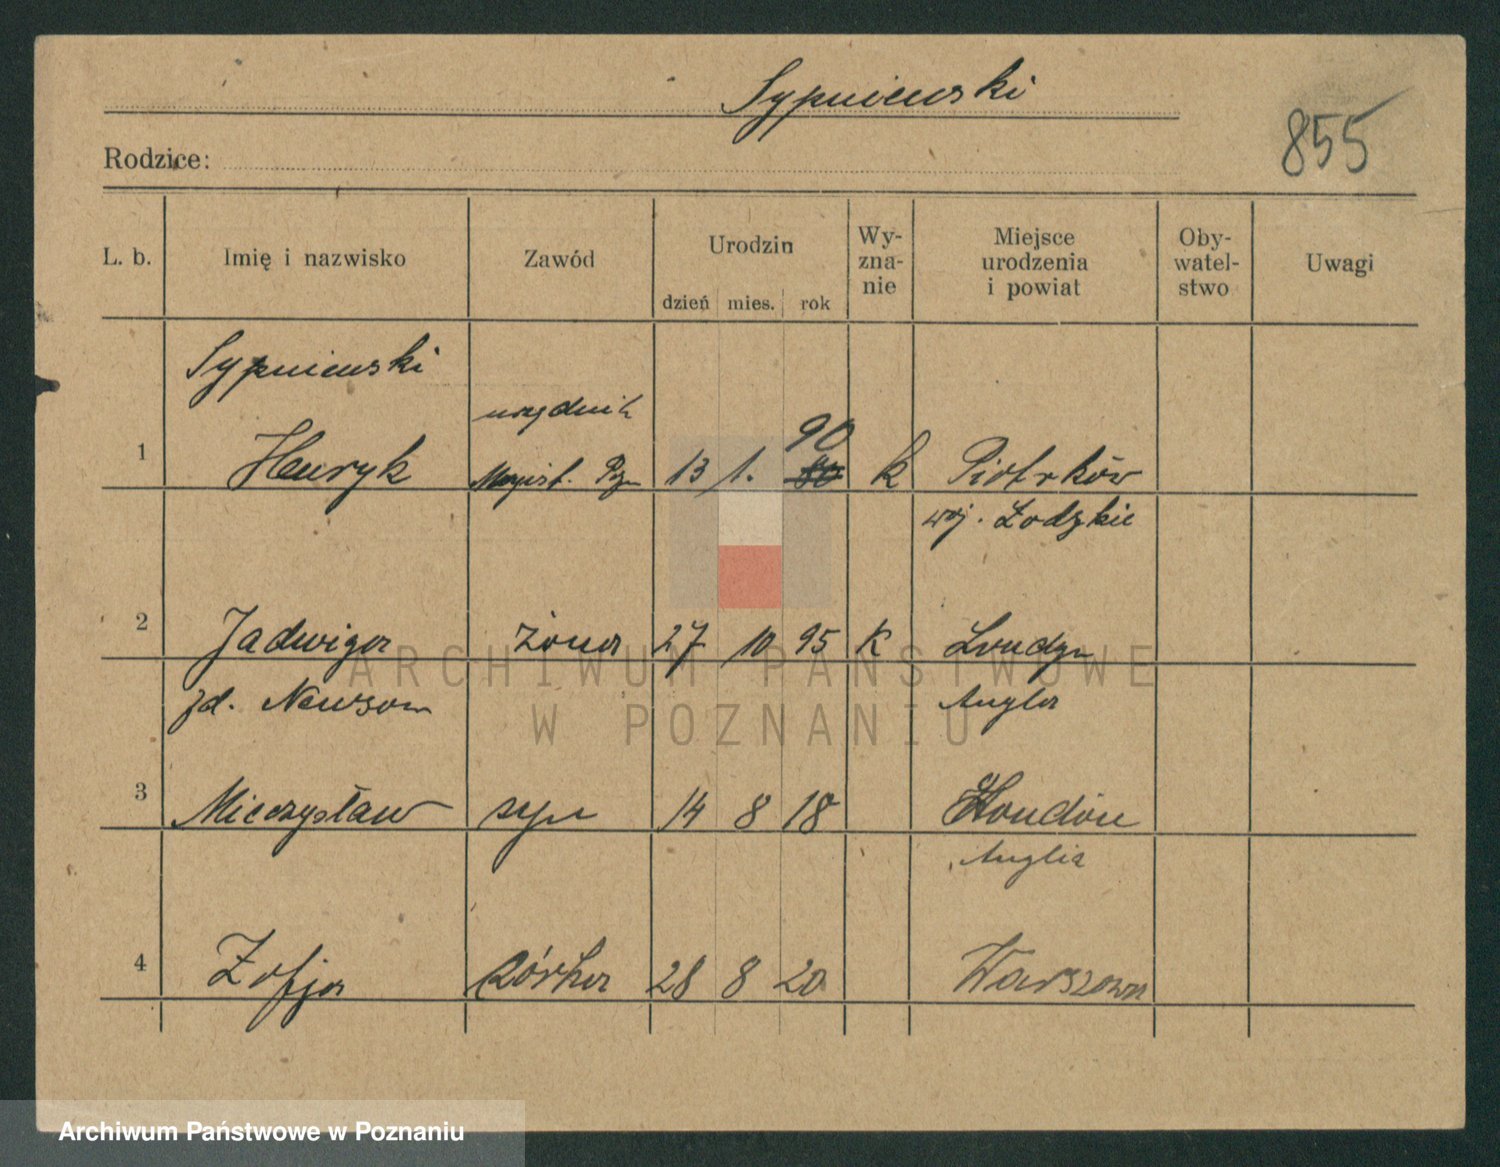 Sypniewski
855
Rodzice:
L. b. Imię i nazwisko Zawód Urodzin dzień mies. rok Wy-zna-nie Miejsce urodzenia i powiat Oby-watel-stwo Uwagi
Sypniewski
urzędnik
90
1 Henryk Magist. 13 1. 80 k Piotrków
woj. Łodzkie
2 Jadwiga żona 27 10 95 K Londyn
zd. Newsom Anglia
ARCHIWUM PAŃSTWOWE
W POZNANIU
3 Mieczysław syn 14 8 18 London
Anglia
4 Zofja córka 28 8 20 Warszawa
Archiwum Państwowe w Poznaniu